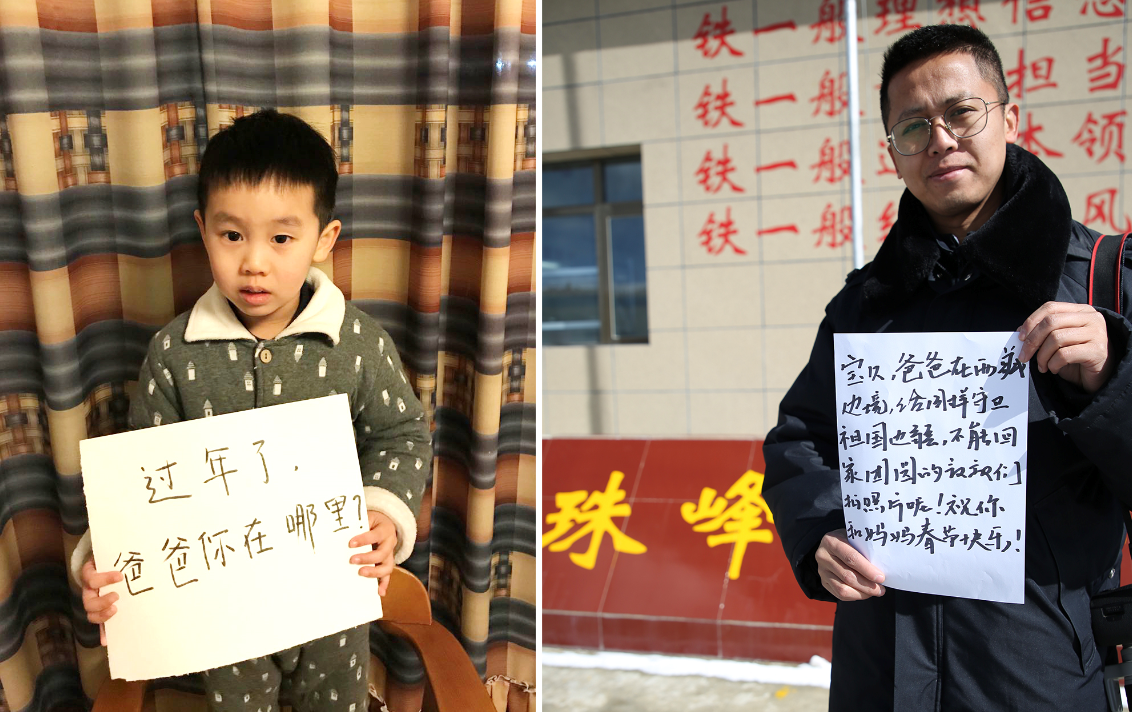 过年了，
爸爸你在哪里？
铁一般理想信念
铁一般 担当
铁一般 本领
铁一般 风
珠峰
宝贝，爸爸在西藏
边境，给同样守卫
祖国边疆，不能回
家团圆的叔叔们
拍照片呢！祝你
和妈妈春节快乐！